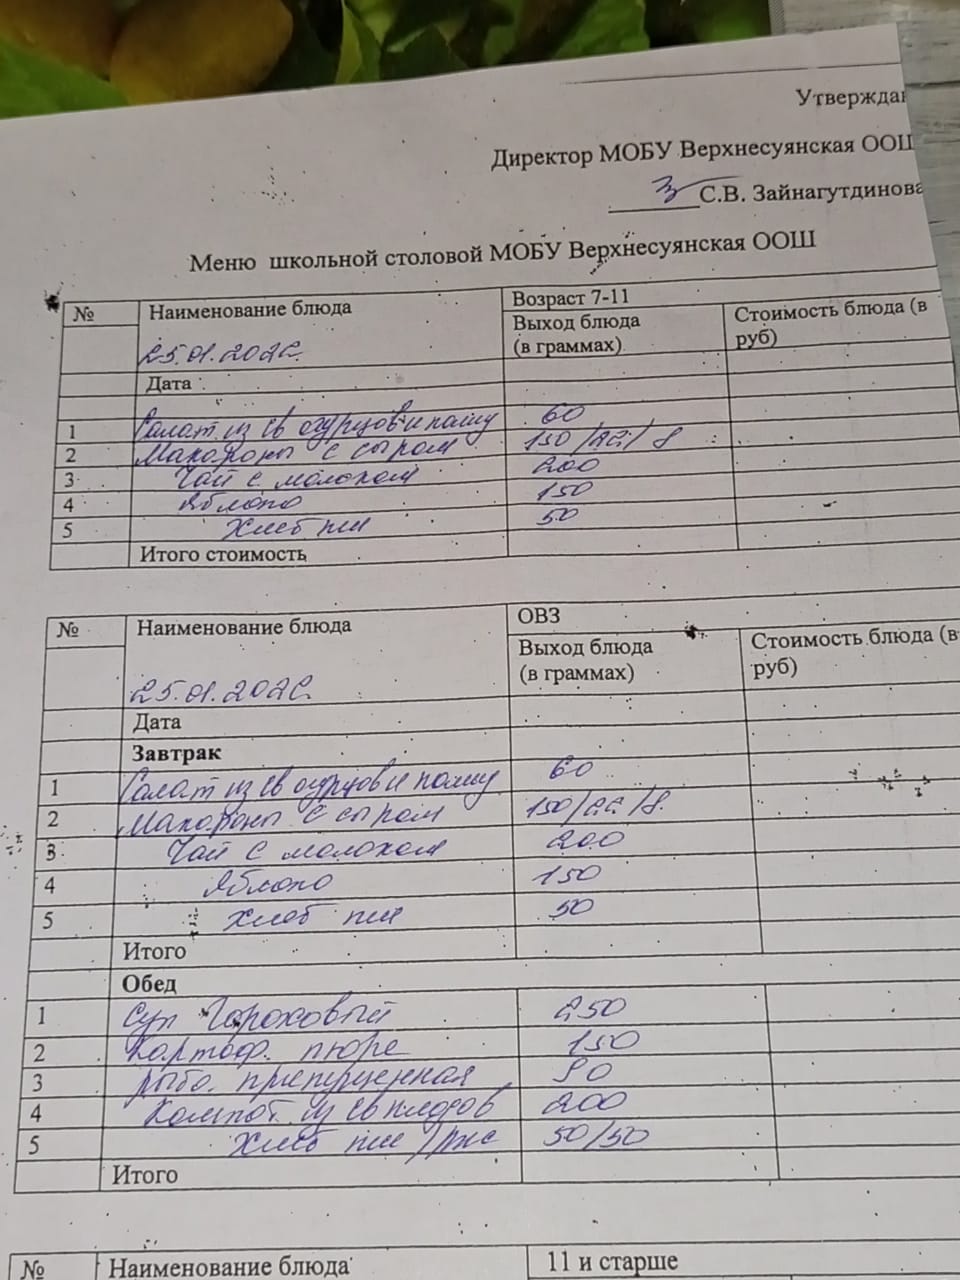 Утверждаю
Директор МОБУ Верхнесуянская ООШ
С.В. Зайнагутдинова
Меню школьной столовой МОБУ Верхнесуянская ООШ
№ Наименование блюда Возраст 7-11
Выход блюда (в граммах) Стоимость блюда (в руб)
25.01.202
Дата
1 Салат из св огурцов и 60
2 Макароны с сыром 150/ /8
3 Чай с молоком 200
4 Яблоко 150
5 Хлеб пш 50
Итого стоимость
№ Наименование блюда ОВЗ
Выход блюда (в граммах) Стоимость блюда (в руб)
25.01.202
Дата
Завтрак
1 Салат из св огурцов и 60
2 Макароны с сыром 150/ /8
3 Чай с молоком 200
4 Яблоко 150
5 Хлеб пш 50
Итого
Обед
1 Суп Гороховый 250
2 Картоф. пюре 150
3 рыба припущенная 90
4 Компот из св плодов 200
5 Хлеб пш /рж 50/50
Итого
№ Наименование блюда 11 и старше